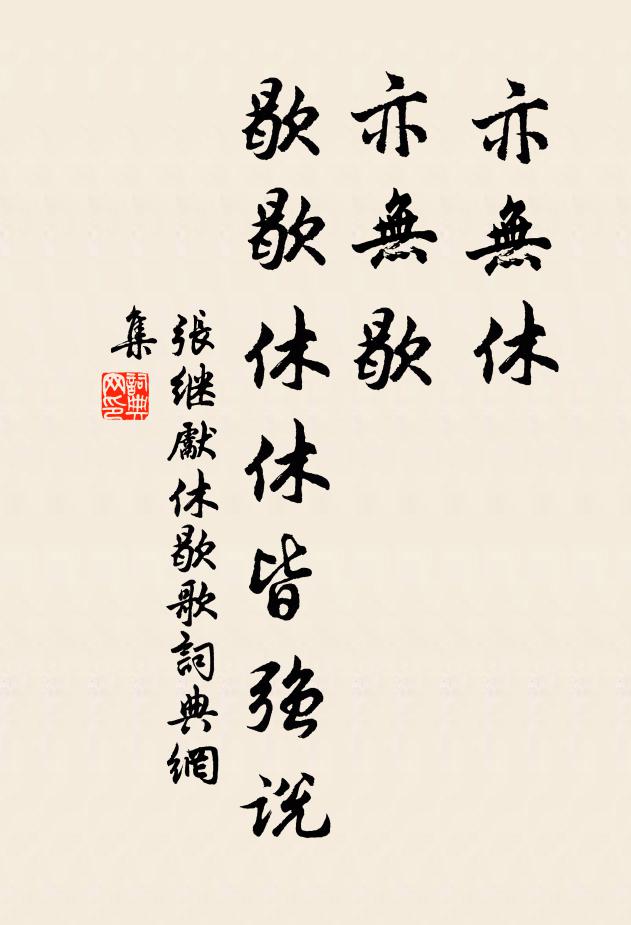 亦無休
亦無歇
歇歇休休皆強說
張继獻休歇歌詞典網
集
詞典
网印